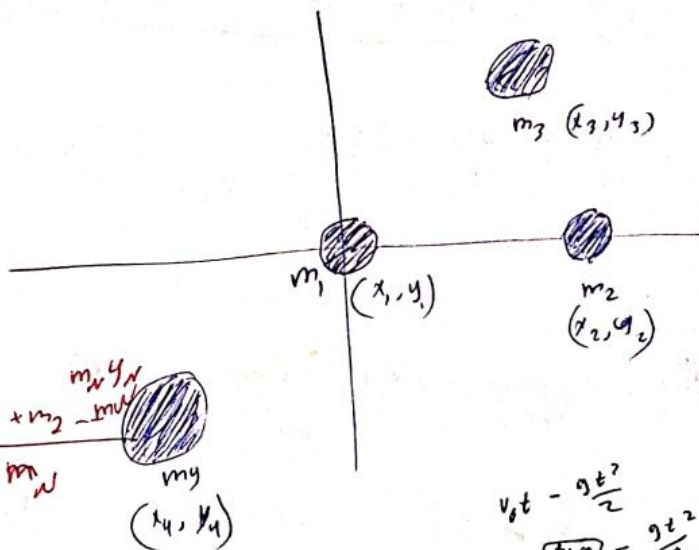 m₃ (x₃,y₃)
m₁ (x₁,y₁)
m₂
(x₂,y₂)
mₙyₙ
+m₂
mₙ
m4
(x₄, y₄)
v₀t - gt²/2
gt²